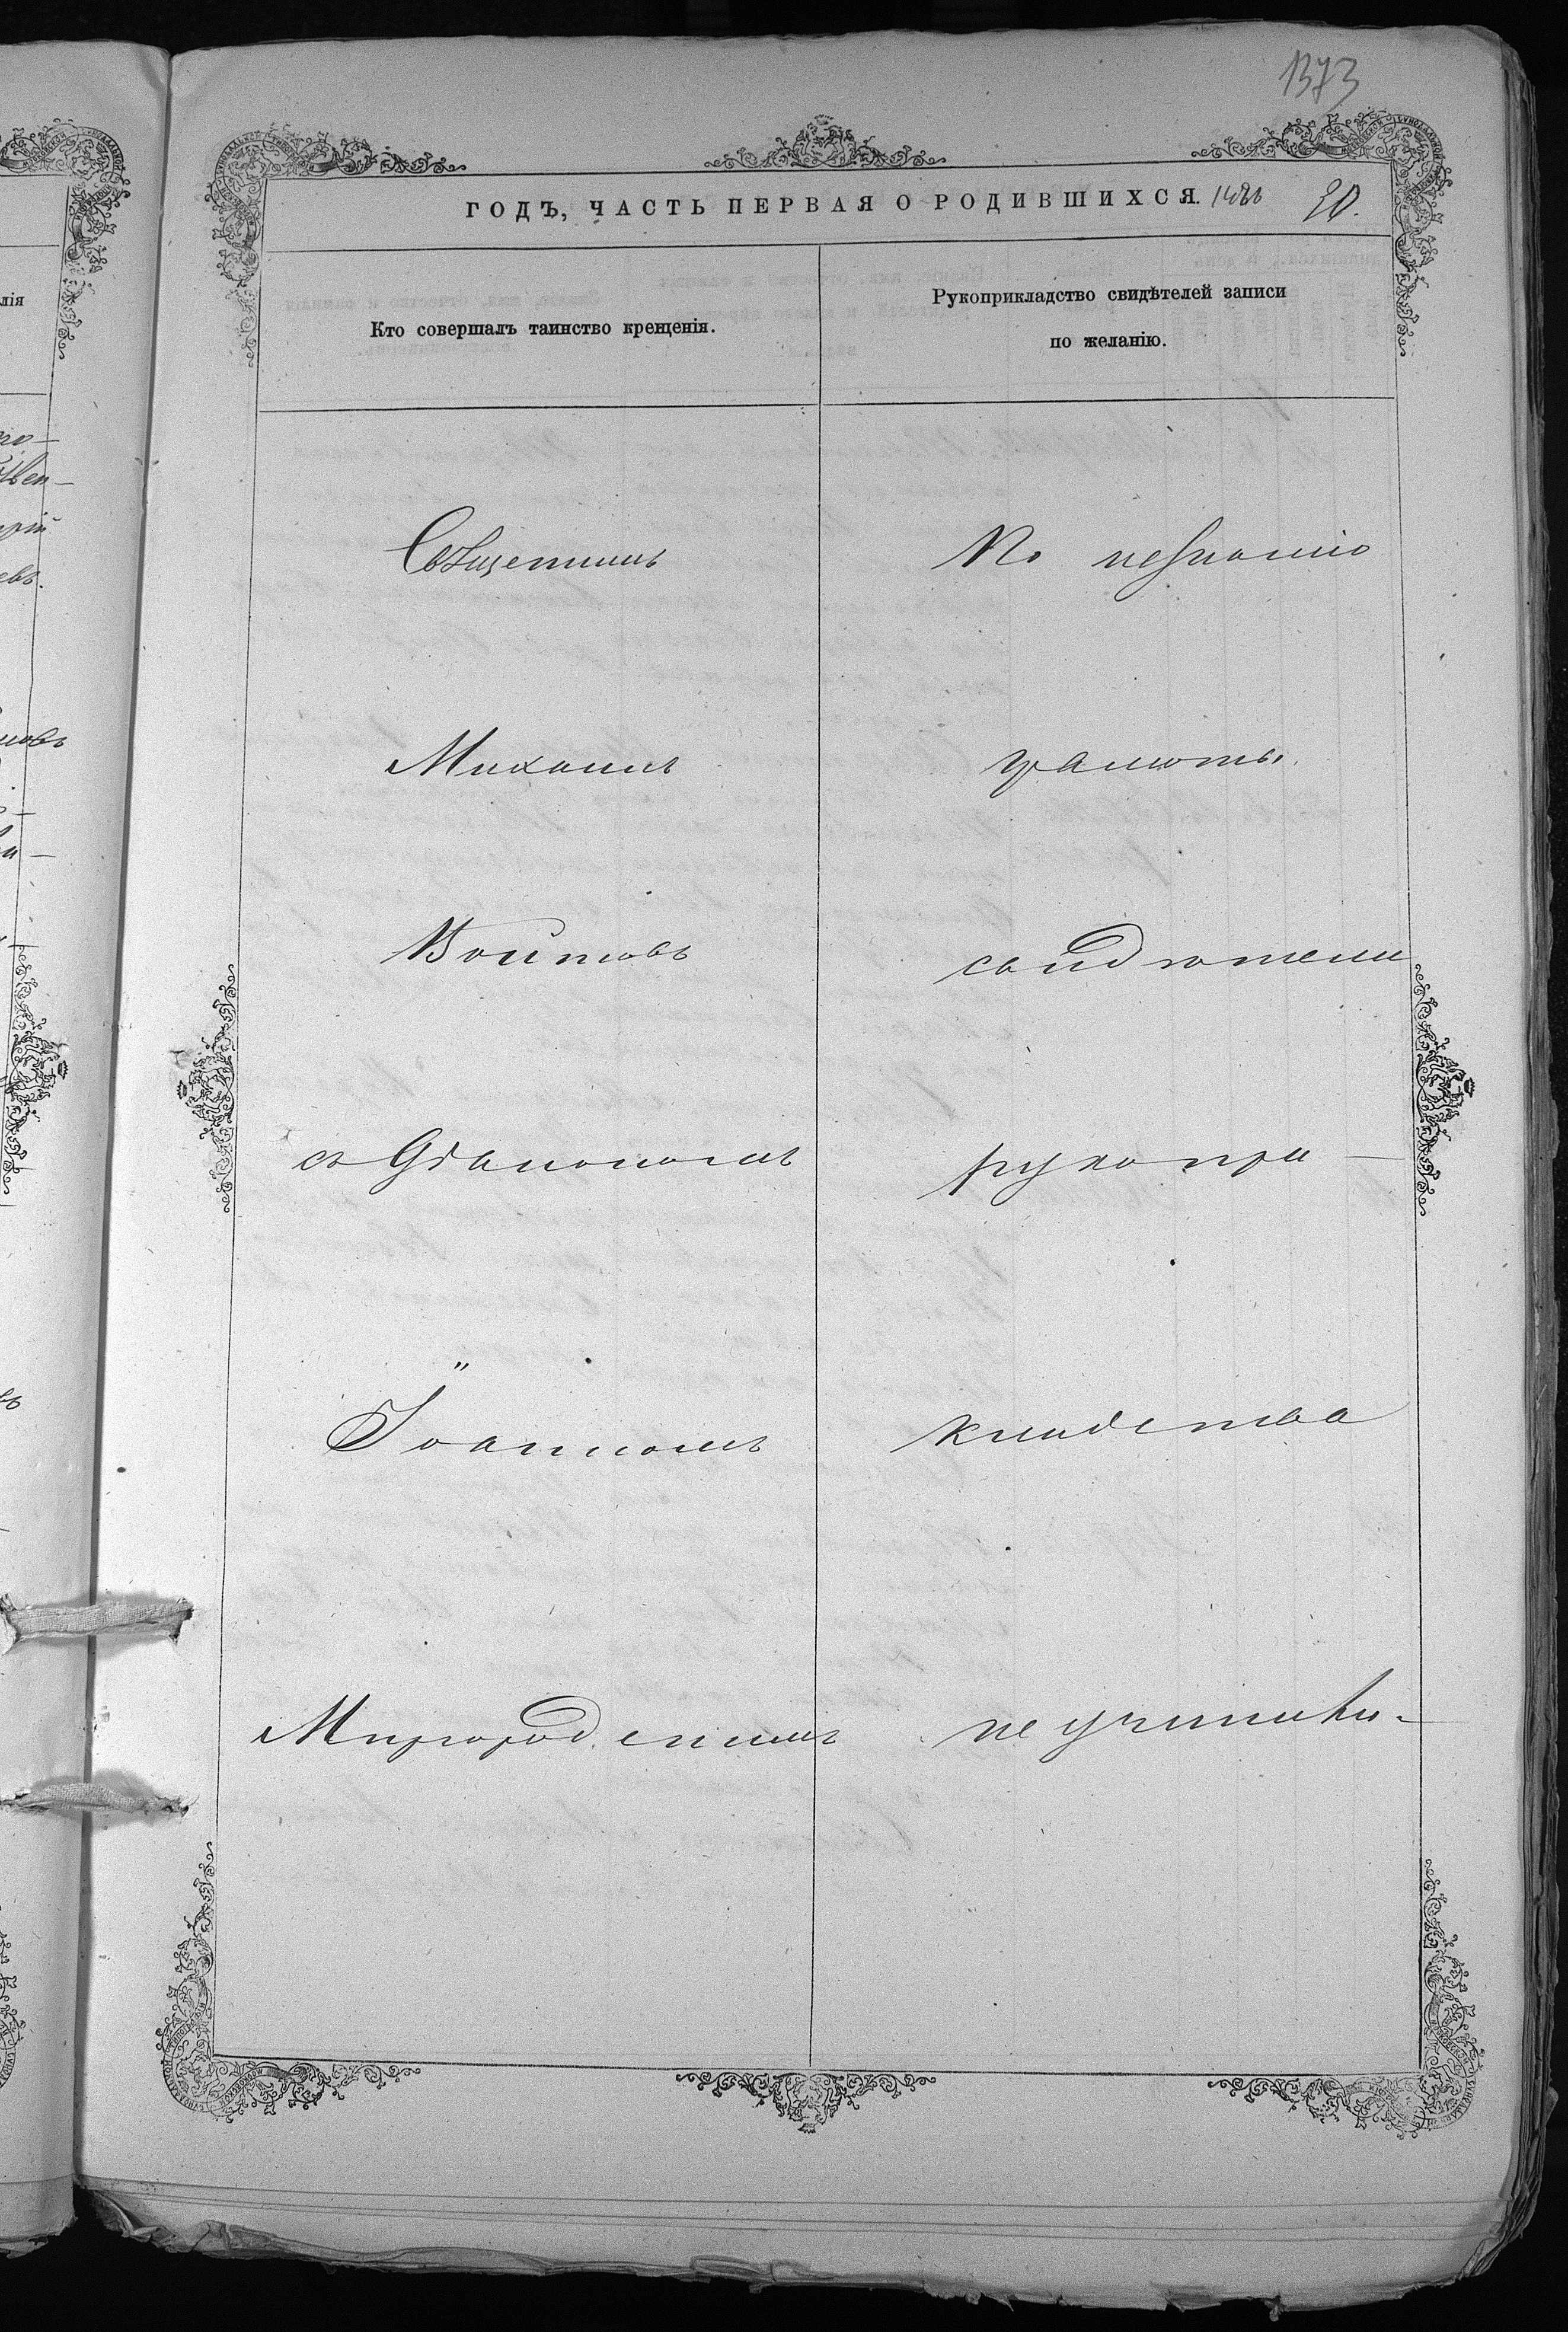 1373
ГОДЪ, ЧАСТЬ ПЕРВАЯ О РОДИВШИХСЯ. 20.
Кто совершалъ таинство крещенія.
Рукоприкладство свидѣтелей записи
по желанію.
Священникъ
Михаилъ
Войтовъ
съ Діакономъ
Іоанномъ
Миргородскимъ
По незнанію
грамоты
свидѣтели
рукопри-
кладства
не учинили-
лія